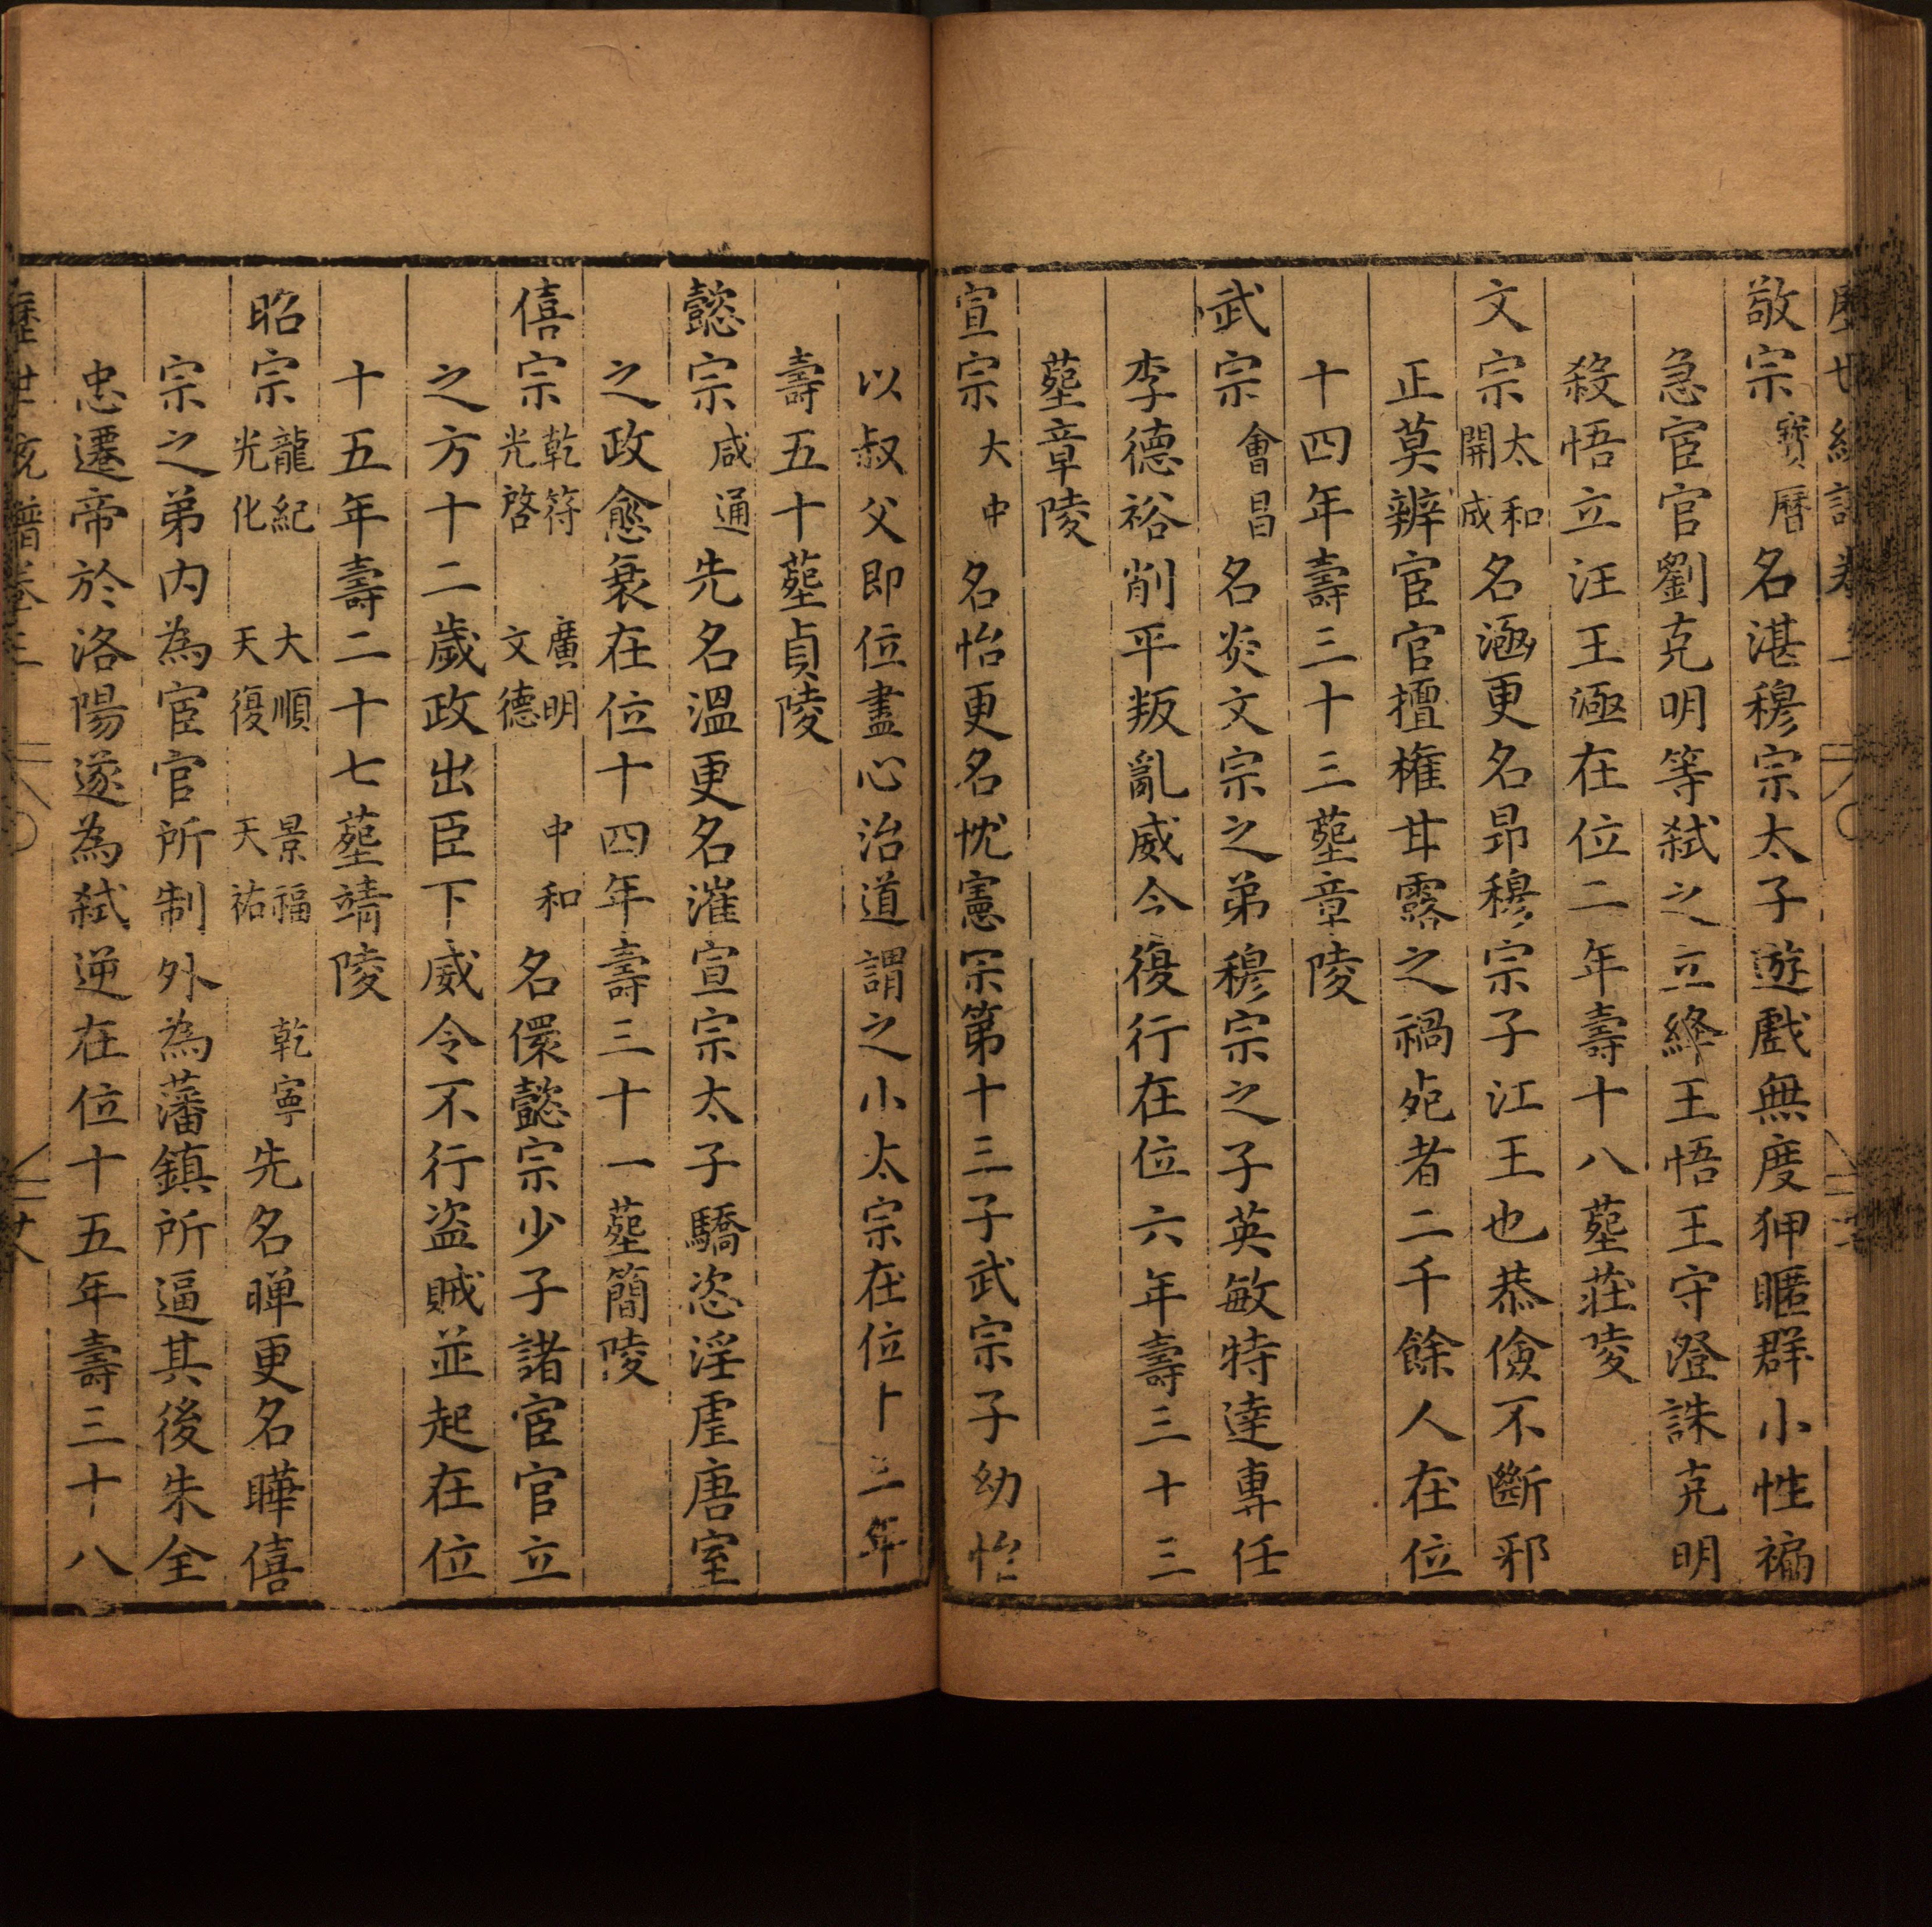 敬宗寶曆名湛穆宗太子遊戲無度狎暱群小性褊
急宦官劉克明等弑之立絳王悟王守澄誅克明
殺悟立江王涵在位二年壽十八塟莊陵
文宗太和開成名涵更名昻穆宗子江王也恭儉不斷邪
正莫辨宦官擅權甘露之禍死者二千餘人在位
十四年壽三十三塟章陵
武宗會昌名炎文宗之弟穆宗之子英敏特達專任
李德裕削平叛亂威令復行在位六年壽三十三
塟章陵
宣宗大中名怡更名忱憲宗第十三子武宗子幼怡
以叔父即位盡心治道謂之小太宗在位十三年
壽五十塟貞陵
懿宗咸通先名溫更名漼宣宗太子驕恣淫虐唐室
之政愈衰在位十四年壽三十一塟簡陵
僖宗乾符光啓廣明文德中和名儇懿宗少子諸宦官立
之方十二歲政出臣下威令不行盗賊並起在位
十五年壽二十七塟靖陵
昭宗龍紀光化大順天復景福天祐乾寧先名暉更名曄僖
宗之弟内為宦官所制外為藩鎮所逼其後朱全
忠遷帝於洛陽遂為弑逆在位十五年壽三十八
歷世統譜卷三